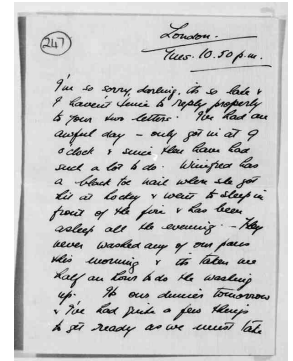 247
London.
Tues. 10.50 p.m.
I'm so sorry, darling, its so late &
I haven't time to reply properly
to your two letters. I've had an
awful day – only got in at 9
o'clock & since then have had
such a lot to do. Winifred has
a black toe nail where she got
hit at hockey & went to sleep in
front of the fire & has been
asleep all the evening – they
never washed any of our pans
this morning & its taken me
half an hour to do the washing
up. Its our dinner tomorrow
& I've had quite a few things
to get ready as we must take